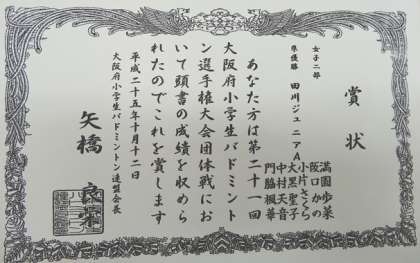 賞状
女子二部
準優勝 田川ジュニアA
満園歩菜
阪口かの
小片さくら
大黒聖子
中村天音
門脇楓華
あなた方は第二十一回
大阪府小学生バドミント
ン選手権大会団体戦にお
いて頭書の成績を収めら
れたのでこれを賞します
平成二十五年十月十二日
大阪府小学生バドミントン連盟会長
矢橋良栄